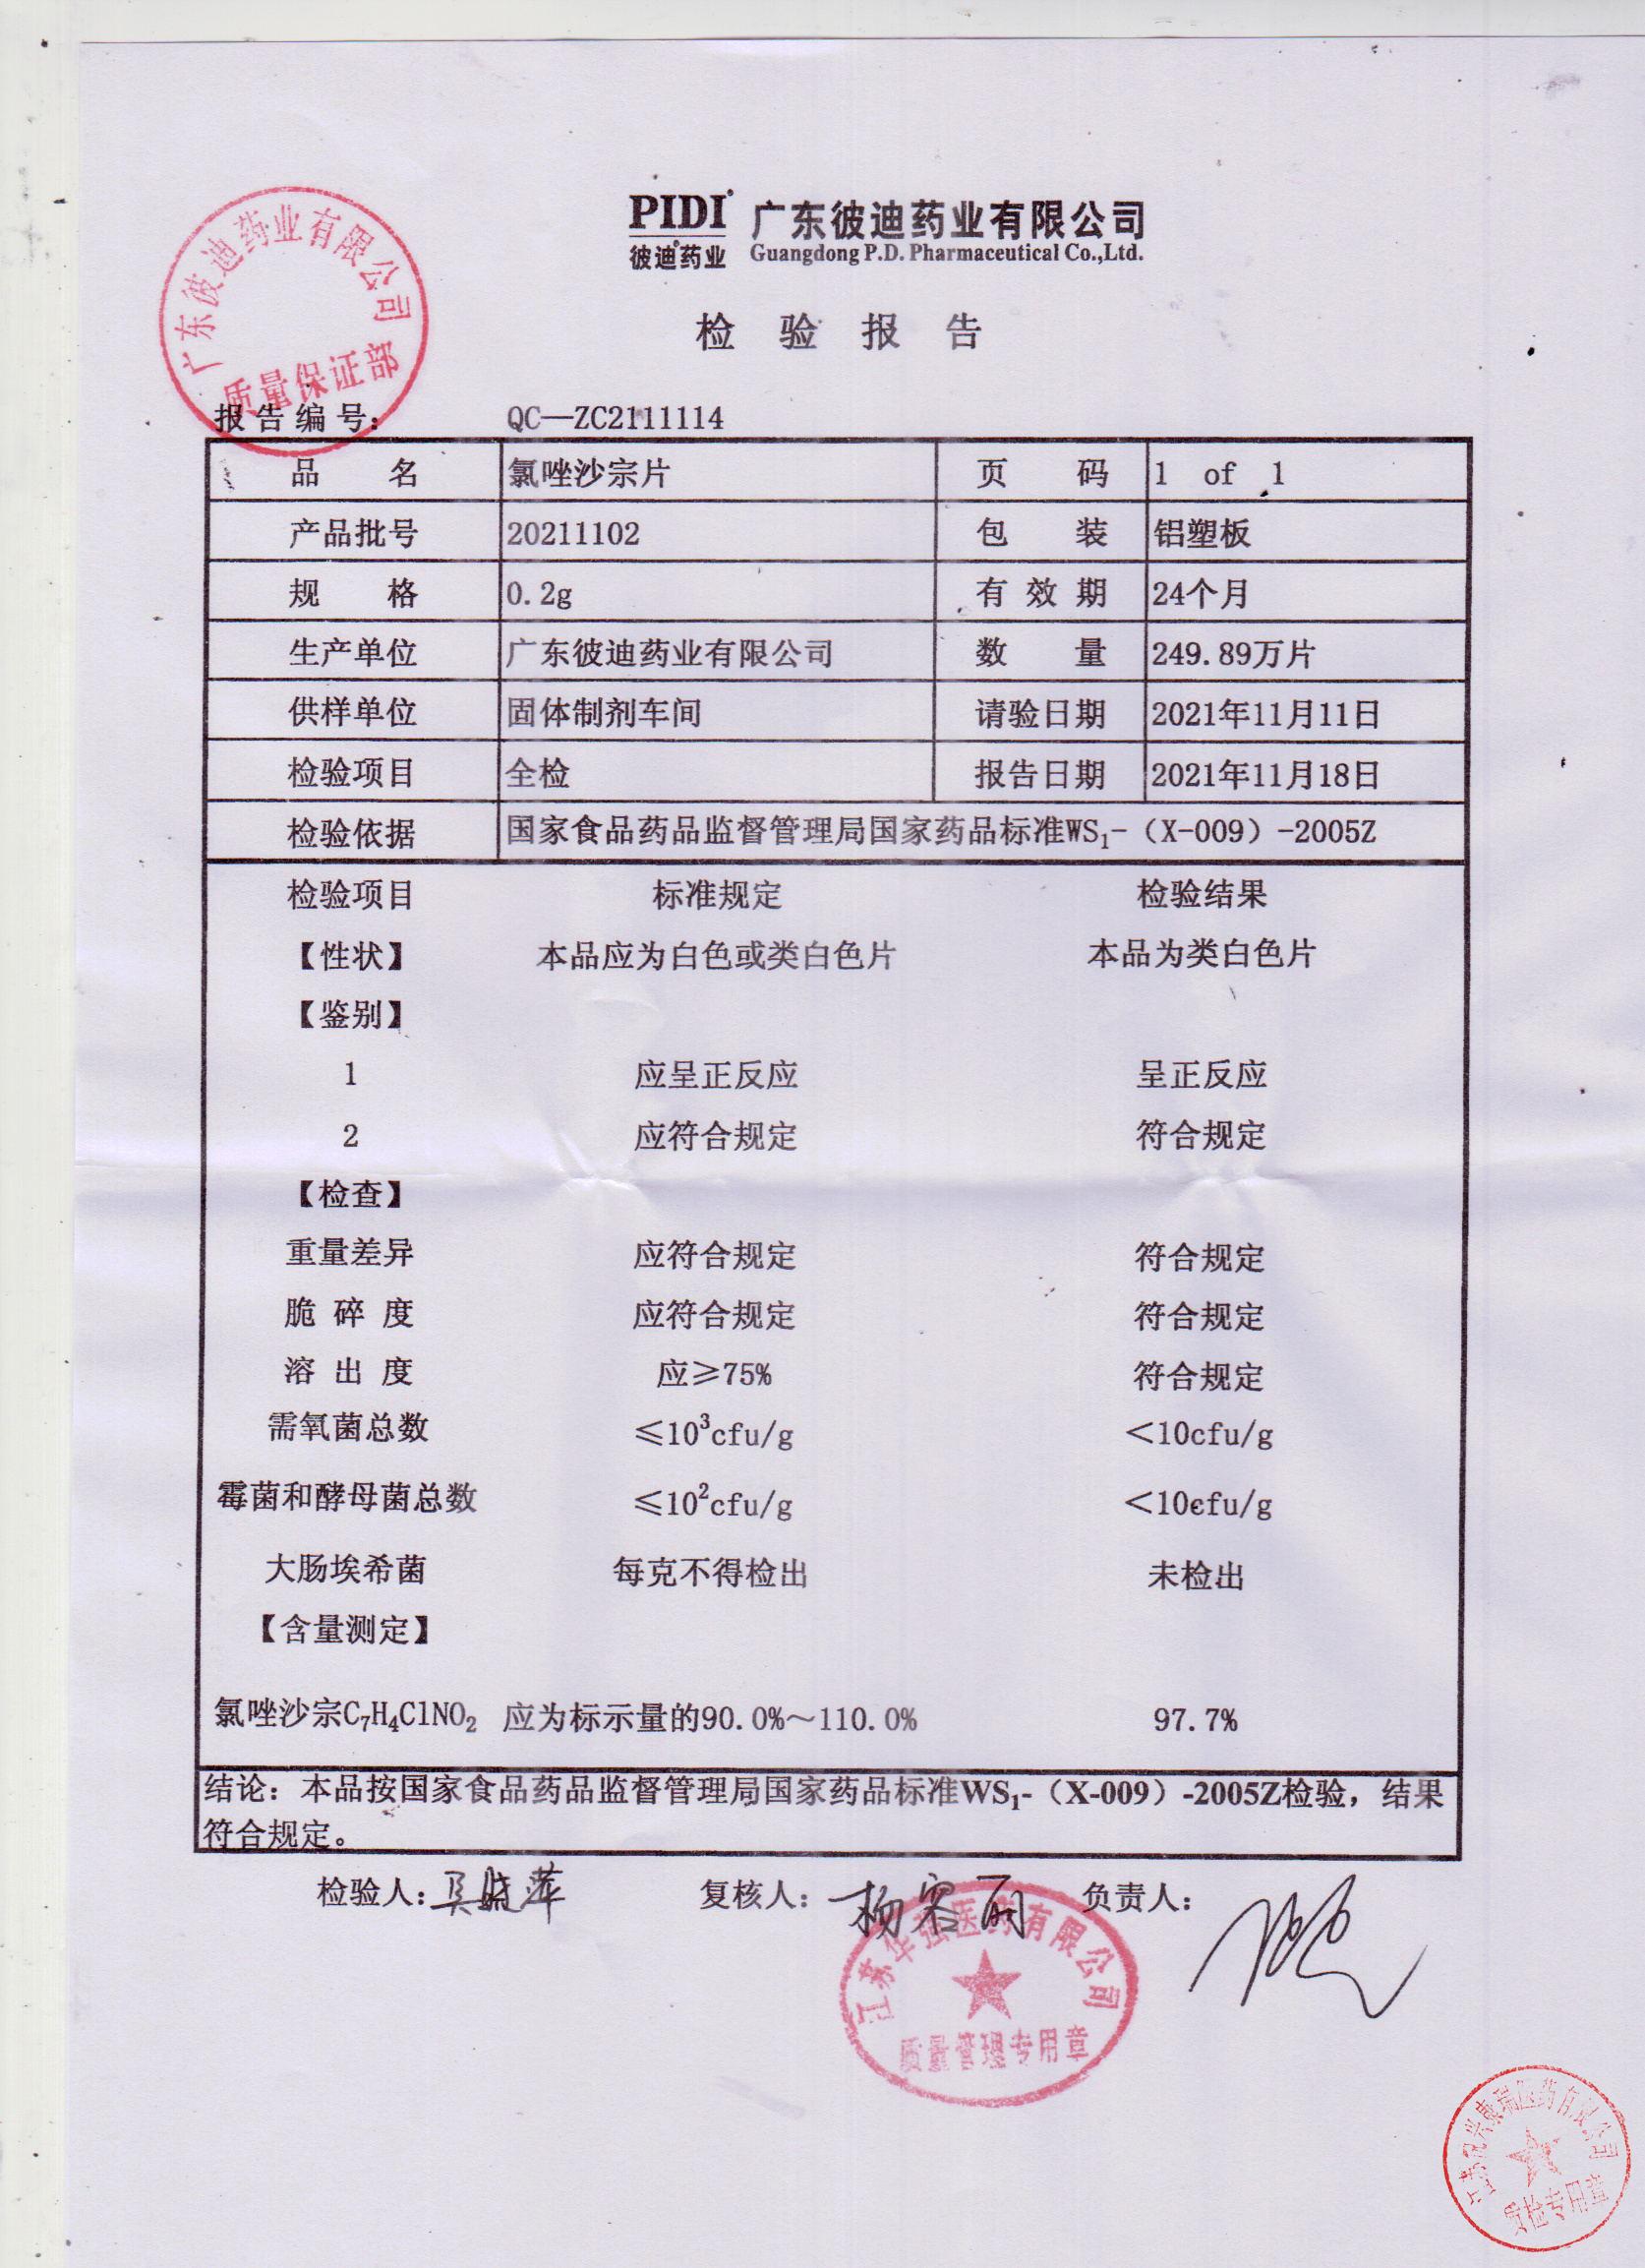 广东彼迪药业有限公司
质量保证部
PIDI 广东彼迪药业有限公司
彼迪药业 Guangdong P.D. Pharmaceutical Co.,Ltd.
检 验 报 告
报告编号: QC—ZC2111114
品 名 氯唑沙宗片 页 码 1 of 1
产品批号 20211102 包 装 铝塑板
规 格 0.2g 有 效 期 24个月
生产单位 广东彼迪药业有限公司 数 量 249.89万片
供样单位 固体制剂车间 请验日期 2021年11月11日
检验项目 全检 报告日期 2021年11月18日
检验依据 国家食品药品监督管理局国家药品标准WS₁-（X-009）-2005Z
检验项目 标准规定 检验结果
【性状】 本品应为白色或类白色片 本品为类白色片
【鉴别】
1 应呈正反应 呈正反应
2 应符合规定 符合规定
【检查】
重量差异 应符合规定 符合规定
脆 碎 度 应符合规定 符合规定
溶 出 度 应≥75% 符合规定
需氧菌总数 ≤10³cfu/g <10cfu/g
霉菌和酵母菌总数 ≤10²cfu/g <10cfu/g
大肠埃希菌 每克不得检出 未检出
【含量测定】
氯唑沙宗C₇H₄ClNO₂ 应为标示量的90.0%～110.0% 97.7%
结论：本品按国家食品药品监督管理局国家药品标准WS₁-（X-009）-2005Z检验，结果
符合规定。
检验人: 吴晓萍 复核人: 杨容丽 负责人:
江苏华强医药有限公司
质量管理专用章
医药有限公司
质检专用章